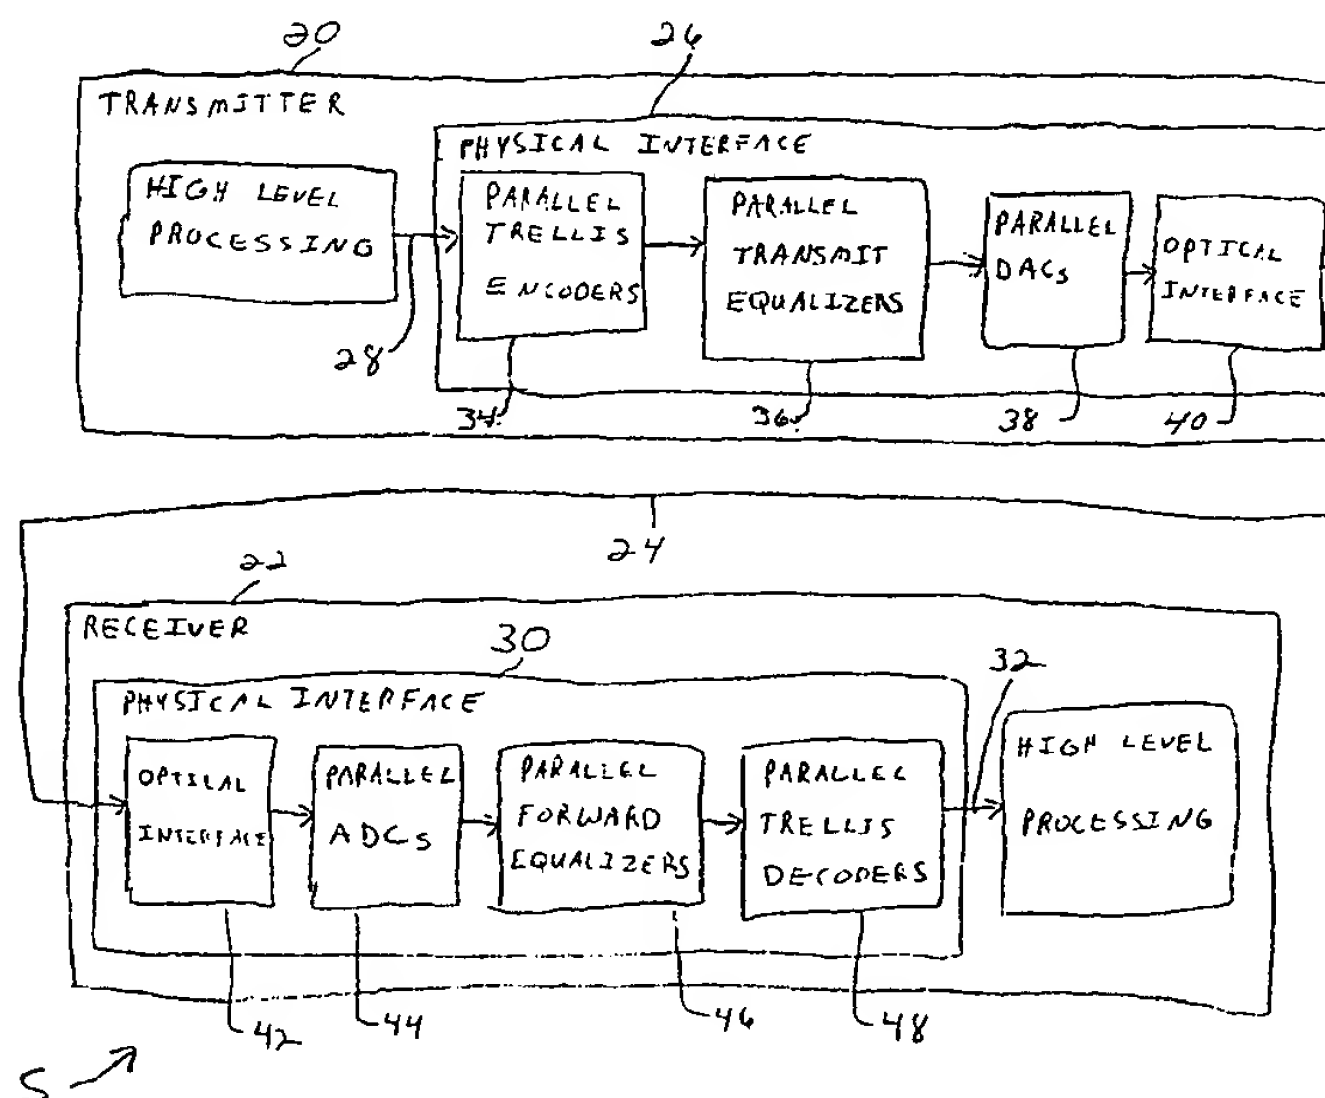 20
26
TRANSMITTER
PHYSICAL INTERFACE
HIGH LEVEL
PROCESSING
PARALLEL
TRELLIS
ENCODERS
PARALLEL
TRANSMIT
EQUALIZERS
PARALLEL
DACs
OPTICAL
INTERFACE
28
34
36
38
40
24
22
RECEIVER
30
32
PHYSICAL INTERFACE
OPTICAL
INTERFACE
PARALLEL
ADCs
PARALLEL
FORWARD
EQUALIZERS
PARALLEL
TRELLIS
DECODERS
HIGH LEVEL
PROCESSING
42
44
46
48